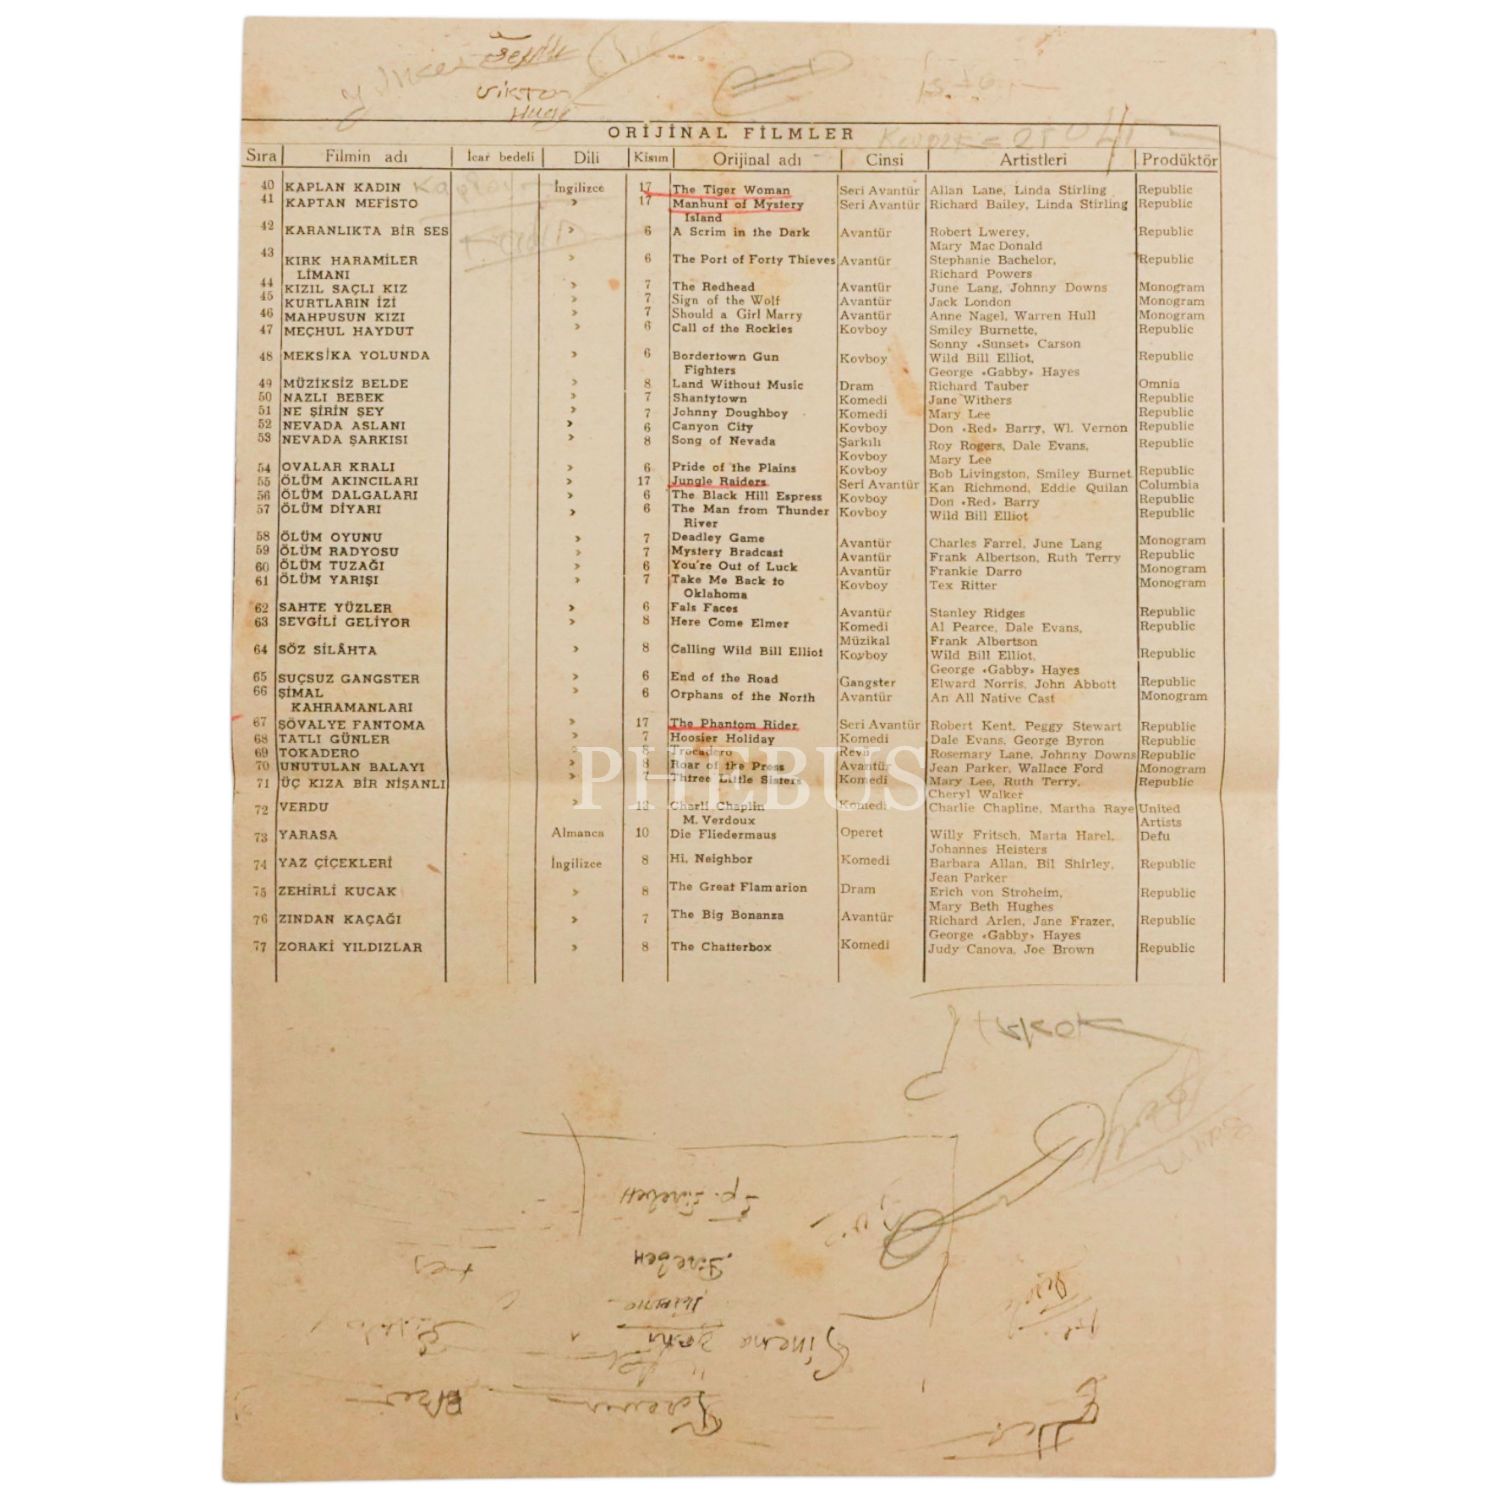 Şefik
Viktor
Hugo
ORİJİNAL FİLMLER
Sıra Filmin adı İcar bedeli Dili Kisım Orijinal adı Cinsi Artistleri Prodüktör
40 KAPLAN KADIN İngilizce 17 The Tiger Woman Seri Avantür Allan Lane, Linda Stirling Republic
41 KAPTAN MEFİSTO » 17 Manhunt of Mystery Seri Avantür Richard Bailey, Linda Stirling Republic
Island
42 KARANLIKTA BİR SES » 6 A Scrim in the Dark Avantür Robert Lwerey, Republic
Mary Mac Donald
43 KIRK HARAMİLER » 6 The Port of Forty Thieves Avantür Stephanie Bachelor, Republic
LİMANI Richard Powers
44 KIZIL SAÇLI KIZ » 7 The Redhead Avantür June Lang, Johnny Downs Monogram
45 KURTLARIN İZİ » 7 Sign of the Wolf Avantür Jack London Monogram
46 MAHPUSUN KIZI » 7 Should a Girl Marry Avantür Anne Nagel, Warren Hull Monogram
47 MEÇHUL HAYDUT » 6 Call of the Rockies Kovboy Smiley Burnette, Republic
Sonny «Sunset» Carson
48 MEKSİKA YOLUNDA » 6 Bordertown Gun Kovboy Wild Bill Elliot, Republic
Fighters George «Gabby» Hayes
49 MÜZİKSİZ BELDE » 8 Land Without Music Dram Richard Tauber Omnia
50 NAZLI BEBEK » 7 Shantytown Komedi Jane Withers Republic
51 NE ŞİRİN ŞEY » 7 Johnny Doughboy Komedi Mary Lee Republic
52 NEVADA ASLANI » 6 Canyon City Kovboy Don «Red» Barry, Wl. Vernon Republic
53 NEVADA ŞARKISI » 8 Song of Nevada Şarkılı Roy Rogers, Dale Evans, Republic
Kovboy Mary Lee
54 OVALAR KRALI » 6 Pride of the Plains Kovboy Bob Livingston, Smiley Burnet Republic
55 ÖLÜM AKINCILARI » 17 Jungle Raiders Seri Avantür Kan Richmond, Eddie Quilan Columbia
56 ÖLÜM DALGALARI » 6 The Black Hill Espress Kovboy Don «Red» Barry Republic
57 ÖLÜM DİYARI » 6 The Man from Thunder Kovboy Wild Bill Elliot Republic
River
58 ÖLÜM OYUNU » 7 Deadley Game Avantür Charles Farrel, June Lang Monogram
59 ÖLÜM RADYOSU » 7 Mystery Bradcast Avantür Frank Albertson, Ruth Terry Republic
60 ÖLÜM TUZAĞI » 6 You're Out of Luck Avantür Frankie Darro Monogram
61 ÖLÜM YARIŞI » 7 Take Me Back to Kovboy Tex Ritter Monogram
Oklahoma
62 SAHTE YÜZLER » 6 Fals Faces Avantür Stanley Ridges Republic
63 SEVGİLİ GELİYOR » 8 Here Come Elmer Komedi Al Pearce, Dale Evans, Republic
Müzikal Frank Albertson
64 SÖZ SİLÂHTA » 8 Calling Wild Bill Elliot Kovboy Wild Bill Elliot, Republic
George «Gabby» Hayes
65 SUÇSUZ GANGSTER » 6 End of the Road Gangster Elward Norris, John Abbott Republic
66 ŞİMAL » 6 Orphans of the North Avantür An All Native Cast Monogram
KAHRAMANLARI
67 ŞÖVALYE FANTOMA » 17 The Phantom Rider Seri Avantür Robert Kent, Peggy Stewart Republic
68 TATLI GÜNLER » 7 Hoosier Holiday Komedi Dale Evans, George Byron Republic
69 TOKADERO » 8 Trocadero Revü Rosemary Lane, Johnny Downs Republic
70 UNUTULAN BALAYI » 8 Roar of the Press Avantür Jean Parker, Wallace Ford Monogram
71 ÜÇ KIZA BİR NİŞANLI » 8 Three Little Sisters Komedi Mary Lee, Ruth Terry, Republic
Cheryl Walker
72 VERDU » 12 Charli Chaplin Komedi Charlie Chapline, Martha Raye United
M. Verdoux Artists
73 YARASA Almanca 10 Die Fliedermaus Operet Willy Fritsch, Marta Harel, Defu
Johannes Heisters
74 YAZ ÇİÇEKLERİ İngilizce 8 Hi, Neighbor Komedi Barbara Allan, Bil Shirley, Republic
Jean Parker
75 ZEHİRLİ KUCAK » 8 The Great Flamarion Dram Erich von Stroheim, Republic
Mary Beth Hughes
76 ZINDAN KAÇAĞI » 7 The Big Bonanza Avantür Richard Arlen, Jane Frazer, Republic
George «Gabby» Hayes
77 ZORAKİ YILDIZLAR » 8 The Chatterbox Komedi Judy Canova, Joe Brown Republic
PHEBUS
Sinema